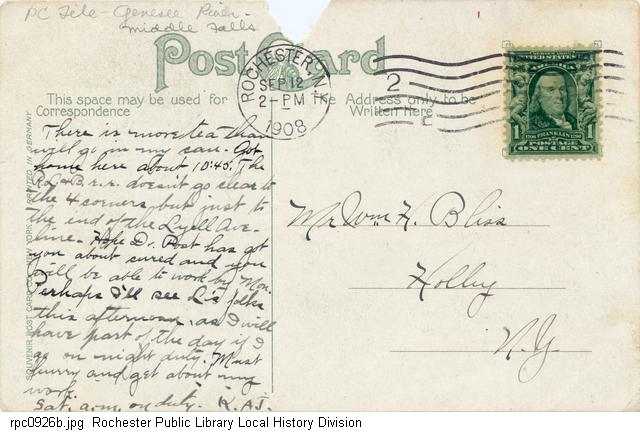 PC File - Genesee River -
Middle Falls
Post Card
ROCHESTER, N.Y.
SEP 12
2-PM
1908
2
UNITED STATES
1 1
FRANKLIN
POSTAGE
ONE CENT
This space may be used for
Correspondence
The Address only to be
Written Here
SOUVENIR POST CARD CO. NEW YORK PRINTED IN GERMANY
There is more tea than
will go in my can. Got
home here about 10:45. The
R. L. & B. r.r. doesn't go clear to
the 4 corners but just to
the end of the Lyell Ave-
line. Hope Dr. Post has got
you about cured and you
will be able to work by Mon.
Perhaps I'll see L's folks
this afternoon, as I will
have part of the day if I
go on night duty. Must
hurry and get about my
work.
Sat. a.m. on duty. K.A.J.
Mr Wm H. Bliss
Holley
N.Y.
rpc0926b.jpg Rochester Public Library Local History Division